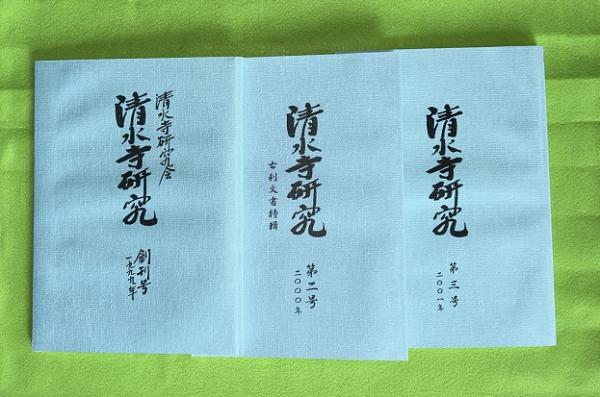 清水寺研究会
清水寺研究
創刊号
一九九九年
清水寺研究
古刹文書特輯
第二号
二〇〇〇年
清水寺研究
第三号
二〇〇一年